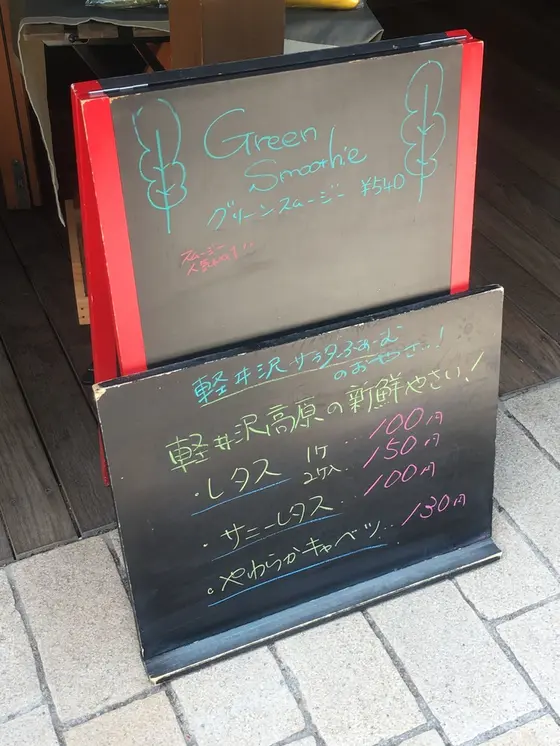 Green
Smoothie
グリーンスムージー ¥540
スムージー
人気No.1!!
軽井沢サラダふぁーむ
のおやさい!
軽井沢高原の新鮮やさい!
・レタス 1ケ... 100円
2ケ入 150円
・サニーレタス... 100円
・やわらかキャベツ... 130円